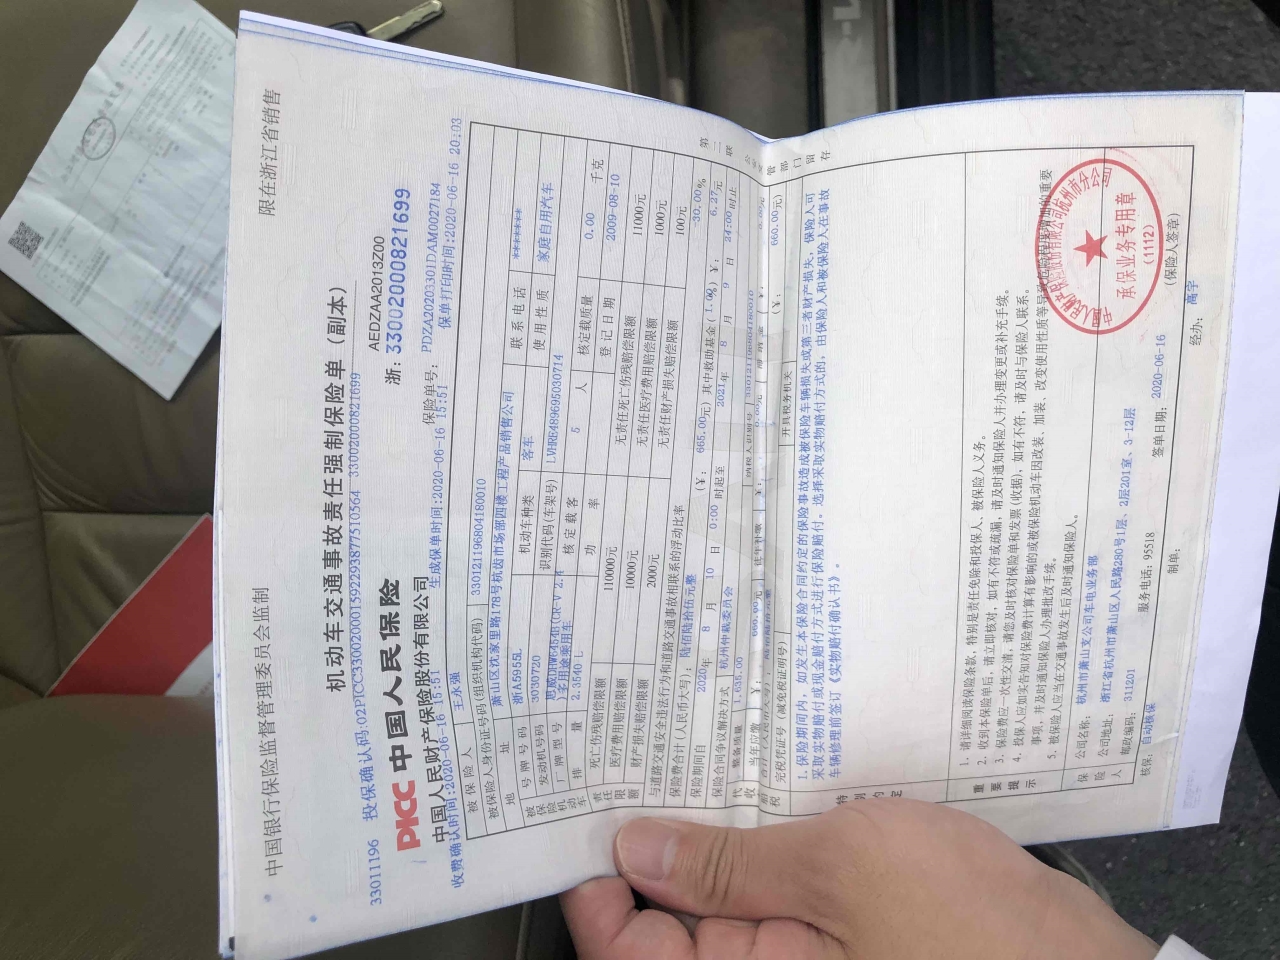 中国银行保险监督管理委员会监制
限在浙江省销售
机动车交通事故责任强制保险单（副本）
33011196 投保确认码:02PICC330020001592293877510564 33002000821699
AEDZAA2013Z00
PICC 中国人民保险
浙: 33002000821699
中国人民财产保险股份有限公司
保险单号: PDZA20203301DAM0027184
收费确认时间:2020-06-16 15:51 生成保单时间:2020-06-16 15:51 保单打印时间:2020-06-16 20:03
被保险人 王永强
被保险人身份证号码(组织机构代码) 330121196804180010
地址 萧山区沈家里路178号杭齿市场部四楼工程产品销售公司 联系电话 ******
被保险机动车
号牌号码 浙A5955L 机动车种类 客车 使用性质 家庭自用汽车
发动机号码 3030720 识别代码(车架号) LVHRE489695030714
厂牌型号 核定载客 5 人 核定载质量 0.00 千克
排量 2.3540 L 功率 登记日期 2009-08-10
责任限额
死亡伤残赔偿限额 110000元 无责任死亡伤残赔偿限额 11000元
医疗费用赔偿限额 10000元 无责任医疗费用赔偿限额 1000元
财产损失赔偿限额 2000元 无责任财产损失赔偿限额 100元
与道路交通安全违法行为和道路交通事故相联系的浮动比率 -30.00%
保险费合计(人民币大写): 陆佰陆拾伍元整 (￥: 665.00元) 其中救助基金(1.00%)￥: 6.27元
保险期间自 2020年 8 月 10 日 0:00 时起至 2021年 8 月 9 日 24:00 时止
保险合同争议解决方式 杭州仲裁委员会
代收车船税
整备质量 1,635.00 纳税人识别号
当年应缴 ￥: 660.00元 往年补缴 ￥:
660.00元)
完税凭证号(减免税证明号) 开具税务机关
特别约定
1.保险期间内，如发生本保险合同约定的保险事故造成被保险车辆损失或第三者财产损失，保险人可
采取实物赔付或现金赔付方式进行保险赔付。选择采取实物赔付方式的，由保险人和被保险人在事故
车辆修理前签订《实物赔付确认书》。
重要提示
1. 请详细阅读保险条款，特别是责任免除和投保人、被保险人义务。
2. 收到本保险单后，请立即核对，如有不符或疏漏，请及时通知保险人并办理变更或补充手续。
3. 保险费应一次性交清，请您及时核对保险单和发票（收据），如有不符，请及时与保险人联系。
4. 投保人应如实告知对保险费计算有影响的或被保险机动车因改装、加装、改变使用性质等导致危险程度增加的重要
事项，并及时通知保险人办理批改手续。
5. 被保险人应当在交通事故发生后及时通知保险人。
保险人
公司名称: 杭州市萧山支公司车电业务部
公司地址: 浙江省杭州市萧山区人民路280号1层、2层201室、3-12层
邮政编码: 311201 服务电话: 95518 签单日期: 2020-06-16 (保险人签章)
核保: 自动核保 制单: 经办: 高宇
承保业务专用章
(1112)